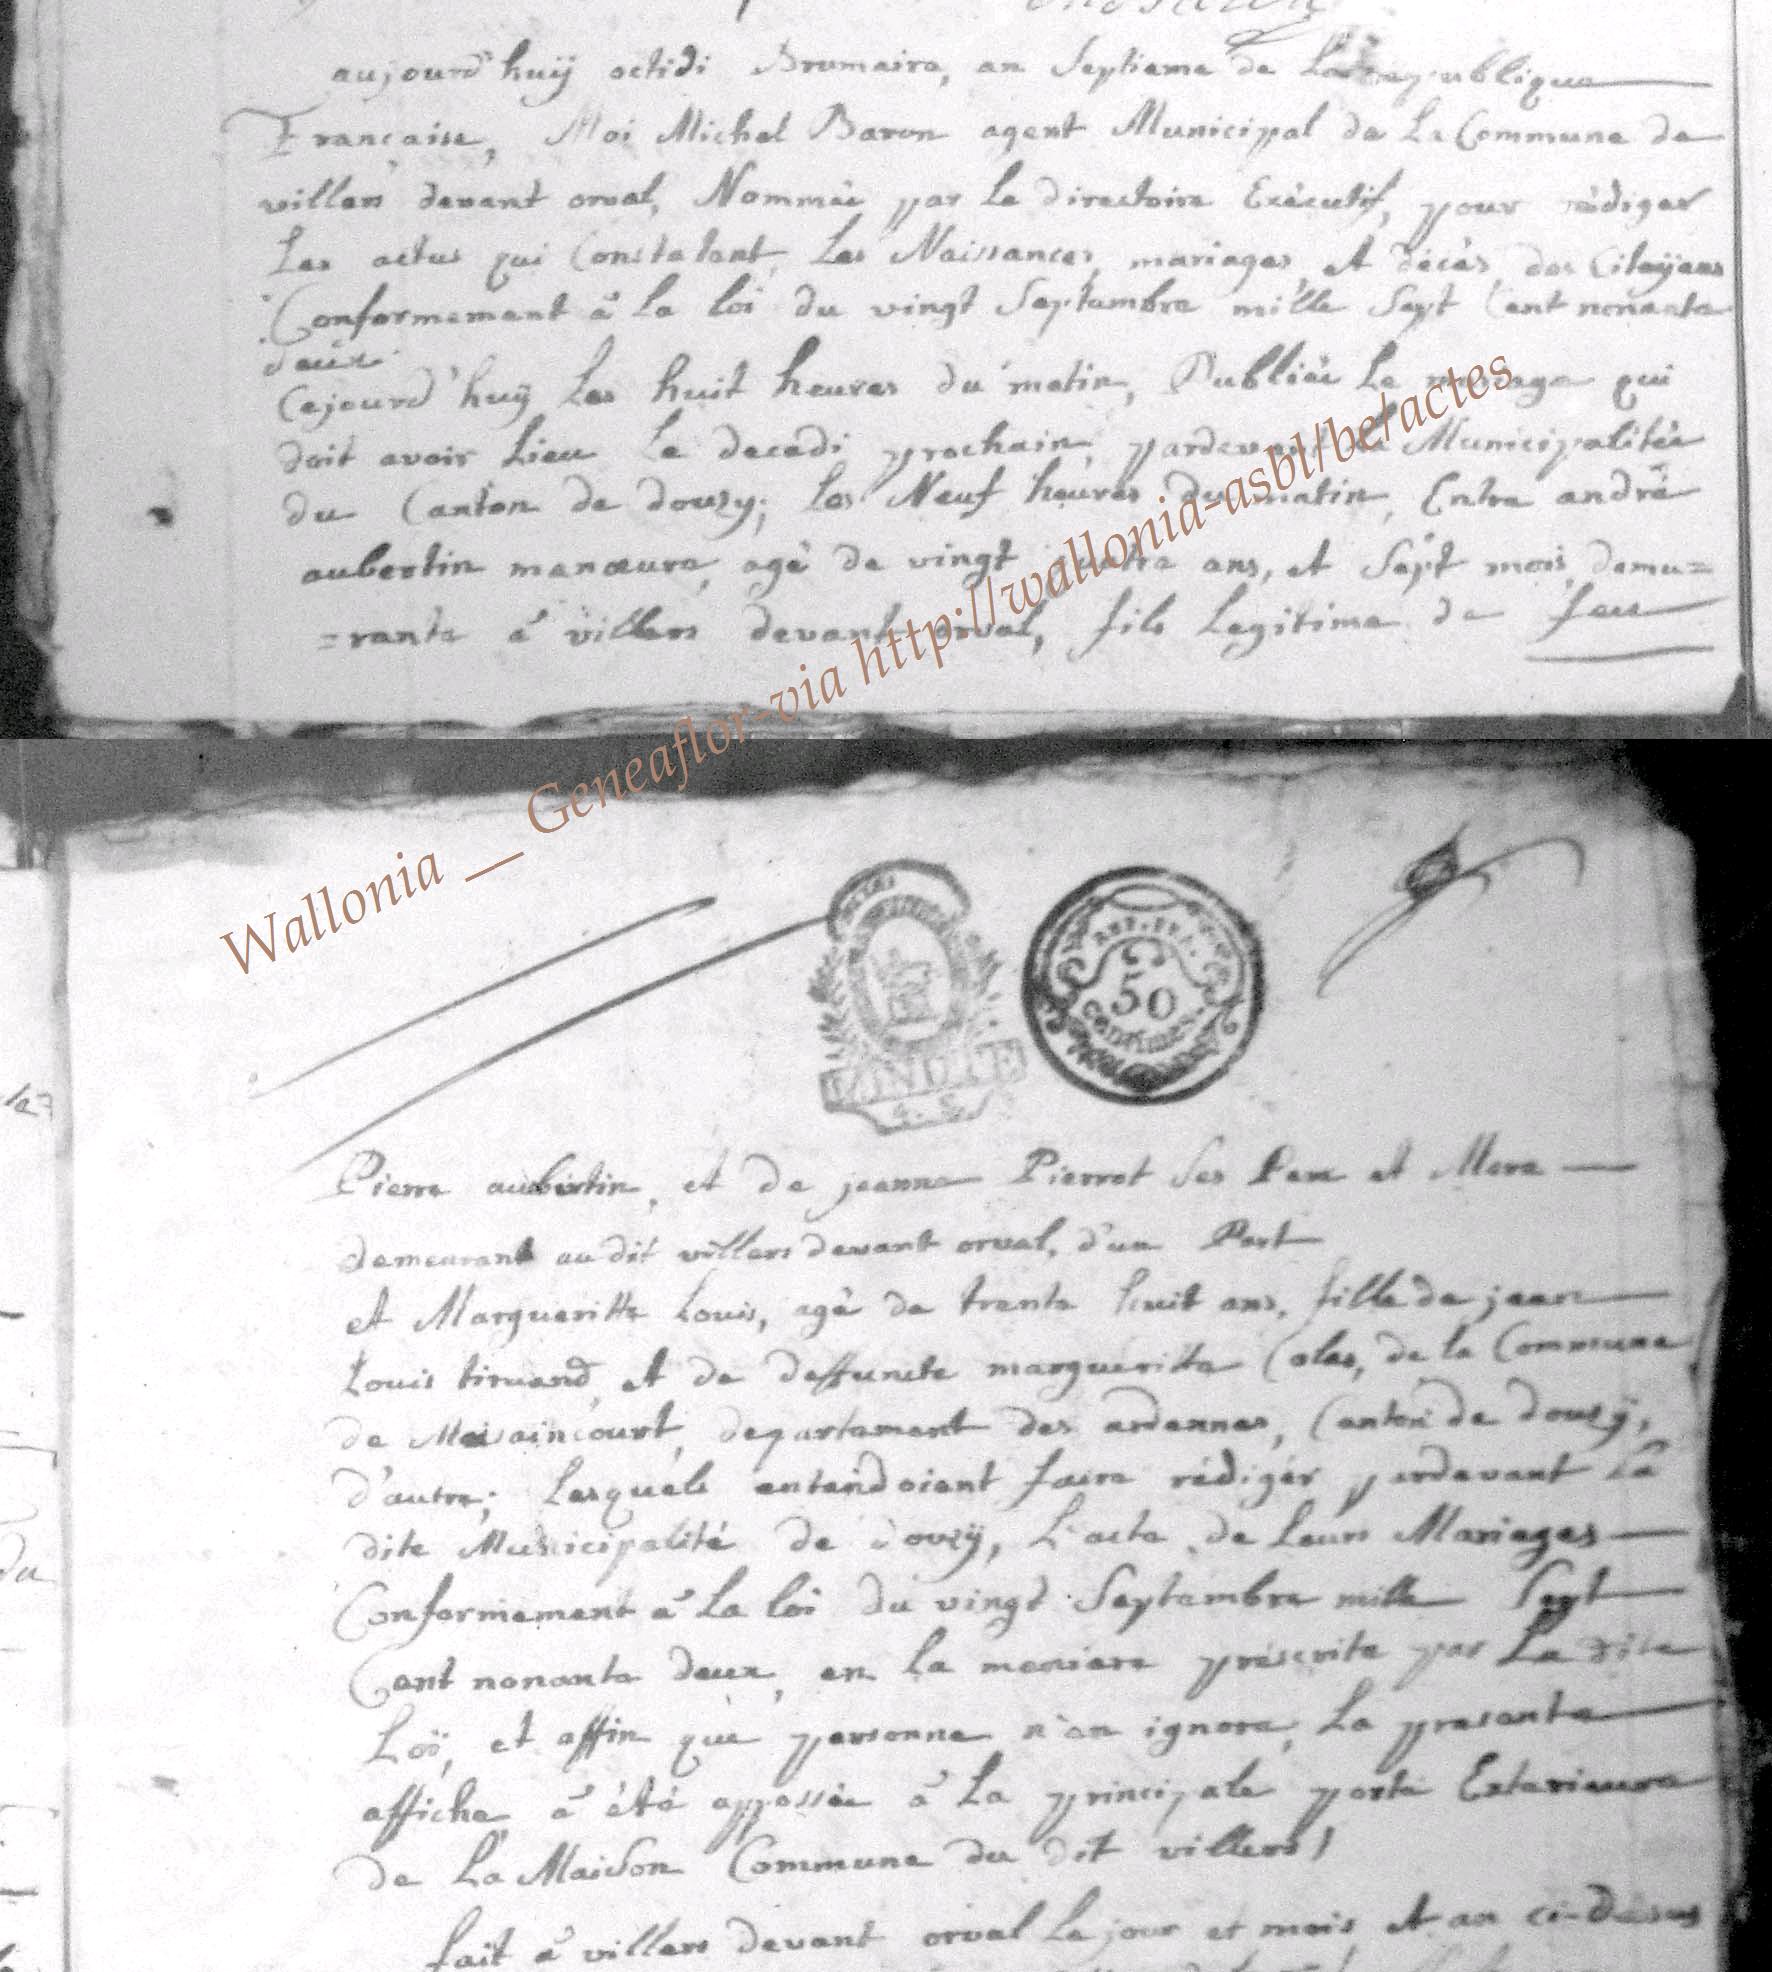 aujourd'huÿ octidi Brumaire, an Septieme de La republique
Francaise, Moi Michel Baron agent Municipal de La Commune de
villers devant orval, Nommée par Le directoire Exécutif, pour rédiger
Les actes qui Constatent Les Naissances, mariages, et décès des Citoÿens
Conformement à La loi du vingt Septembre mille Sept Cent nonante
deux
Cejourd'huÿ Les huit heures du matin, Publiée Le mariage qui
doit avoir Lieu Le decadi prochain, pardevant la Municipalitée
du Canton de douzy; Les Neuf heures du matin, Entre andré
aubertin manœuvre, agé de vingt quatre ans, et Sept mois, demu=
=rante à villers devant orval, fils Legitime de feu
Wallonia __ Geneaflor-via http://wallonia-asbl/be/actes
REP. FRA.
50
centimes.
Pierre aubertin, et de jeanne Pierrot Ses Pere et Mere
demeurant audit villers devant orval, d'un Part
et Margueritte Louis, agé de trente huit ans, fille de jean
Louis tirnand, et de deffuncte margueritte Colas, de la Commune
de Moiraincourt, departement des ardennes, Canton de douzÿ,
d'autre; Lesquels entendoient faire rédiger pardevant La
dite Municipalité de douzÿ, L'acte de Leurs Mariages
Conformement à La loi du vingt Septembre mille Sept
Cent nonante deux, en La maniere préscrite par La dite
Loï, et affin què personne n'en ignore, La presente
affiche à été apposée à La principale porte Exterieure
de La Maison Commune du dit villers /
fait à villers devant orval Le jour et mois et an ci-dèsus